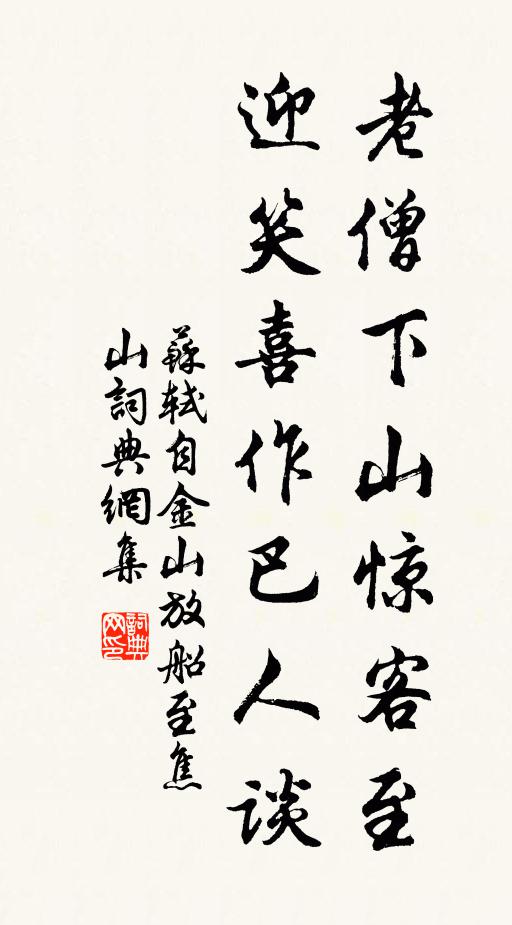 老僧下山惊客至
迎笑喜作巴人谈
蘇軾自金山放船至焦
山詞典網集
詞典
网印